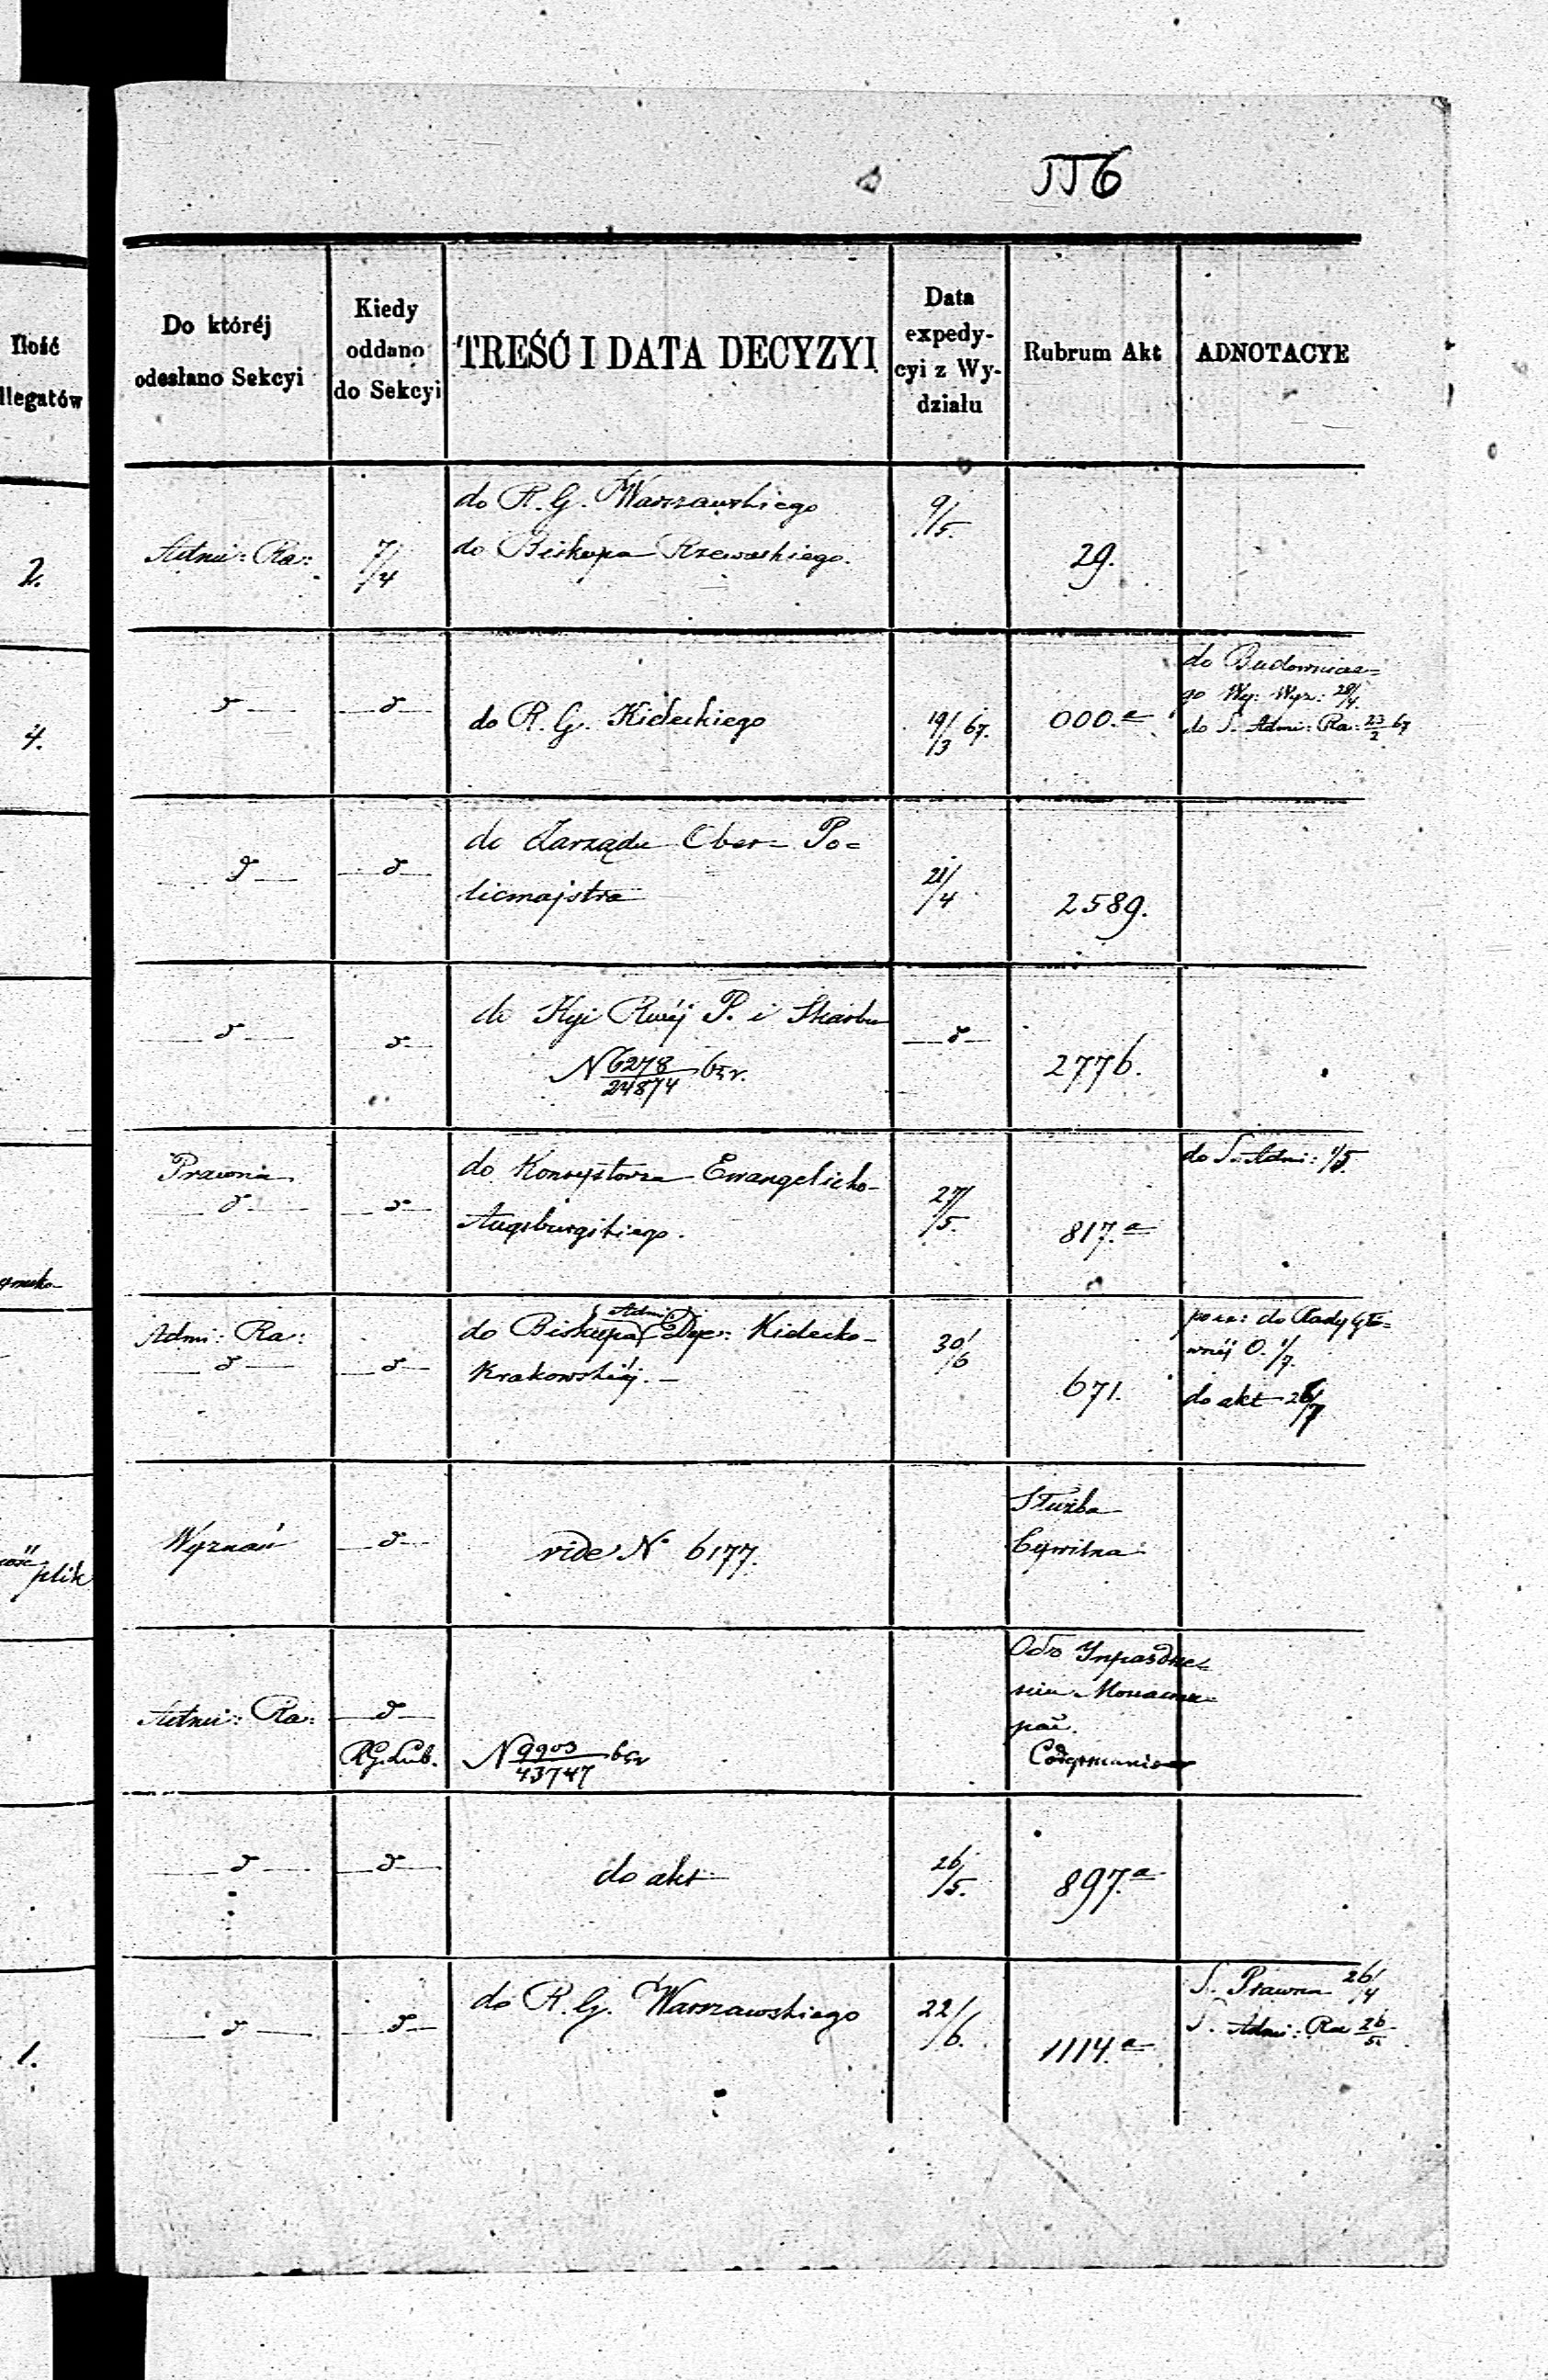 556
Ilość
llegatów
Do któréj
odesłano Sekcyi
Kiedy
oddano
do Sekcyi
TREŚĆ I DATA DECYZYI
Data
expedy-
cyi z Wy-
działu
Rubrum Akt
ADNOTACYE
2.
Admi: Ra:
7/4
do R. G. Warszawskiego
do Biskupa Rzewuskiego.
9/5.
29.
4.
do R. G. Kieleckiego
19/3 67.
000.a
do Budownicze=
go Wy: Wyz: 28/4.
do S. Admi: Ra: 23/2 67
do Zarządu Ober= Po=
licmajstra
21/4
2589.
do Kyi Rwéj P. i Skarbu
N 6278/24874 bzr.
2776.
Prawna
do Konsystorza Ewangelicko-
Augsburgskiego.
27/5.
817.a
do S. Admi: 1/5
Admi: Ra:
do Biskupa Admi Dyec: Kielecko-
Krakowskiéj. —
30/6
671.
do Rady Głó=
wnéj O. 1/7.
do akt 26/7
plik
Wyznań
vide No 6177.
Służba
Cywilna
Admi: Ra:
R.G. Lub.
N 9903/43747 bzr
do akt
26/5.
897.a
1.
do R. G. Warszawskiego
22/6.
1114.a
S. Prawna 26/4
S. Admi: Ra 26/5